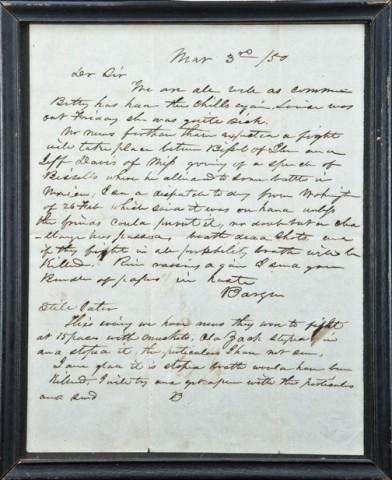 Mar 3rd /50
Dr Sir
We are all well as common
Betty has had the chills again, Louisa was
out Friday she was quite sick.
No news further than expected a fight
will take place between Bissel of Ills and
Jeff Davis of Miss growing of a speech of
Bissells where he alluded to some battle in
Mexico, I saw a dispatch to day from Washington
of 26 Feb which said it was on hand unless
the friends could prevent it, no doubt a cha
llenge has passed, both dead shots and
if they fight in all probability both will be
Killed. Rain raising again I send you
Bundle of papers in haste
Barger
Little later
This evening we have news they were to fight
at 15 paces with muskets, Old Zack stepped in
and stoped it, the particulars I have not seen.
I am glad it is stoped both would have been
Killed, I will try and get a paper with the particulars
and send B